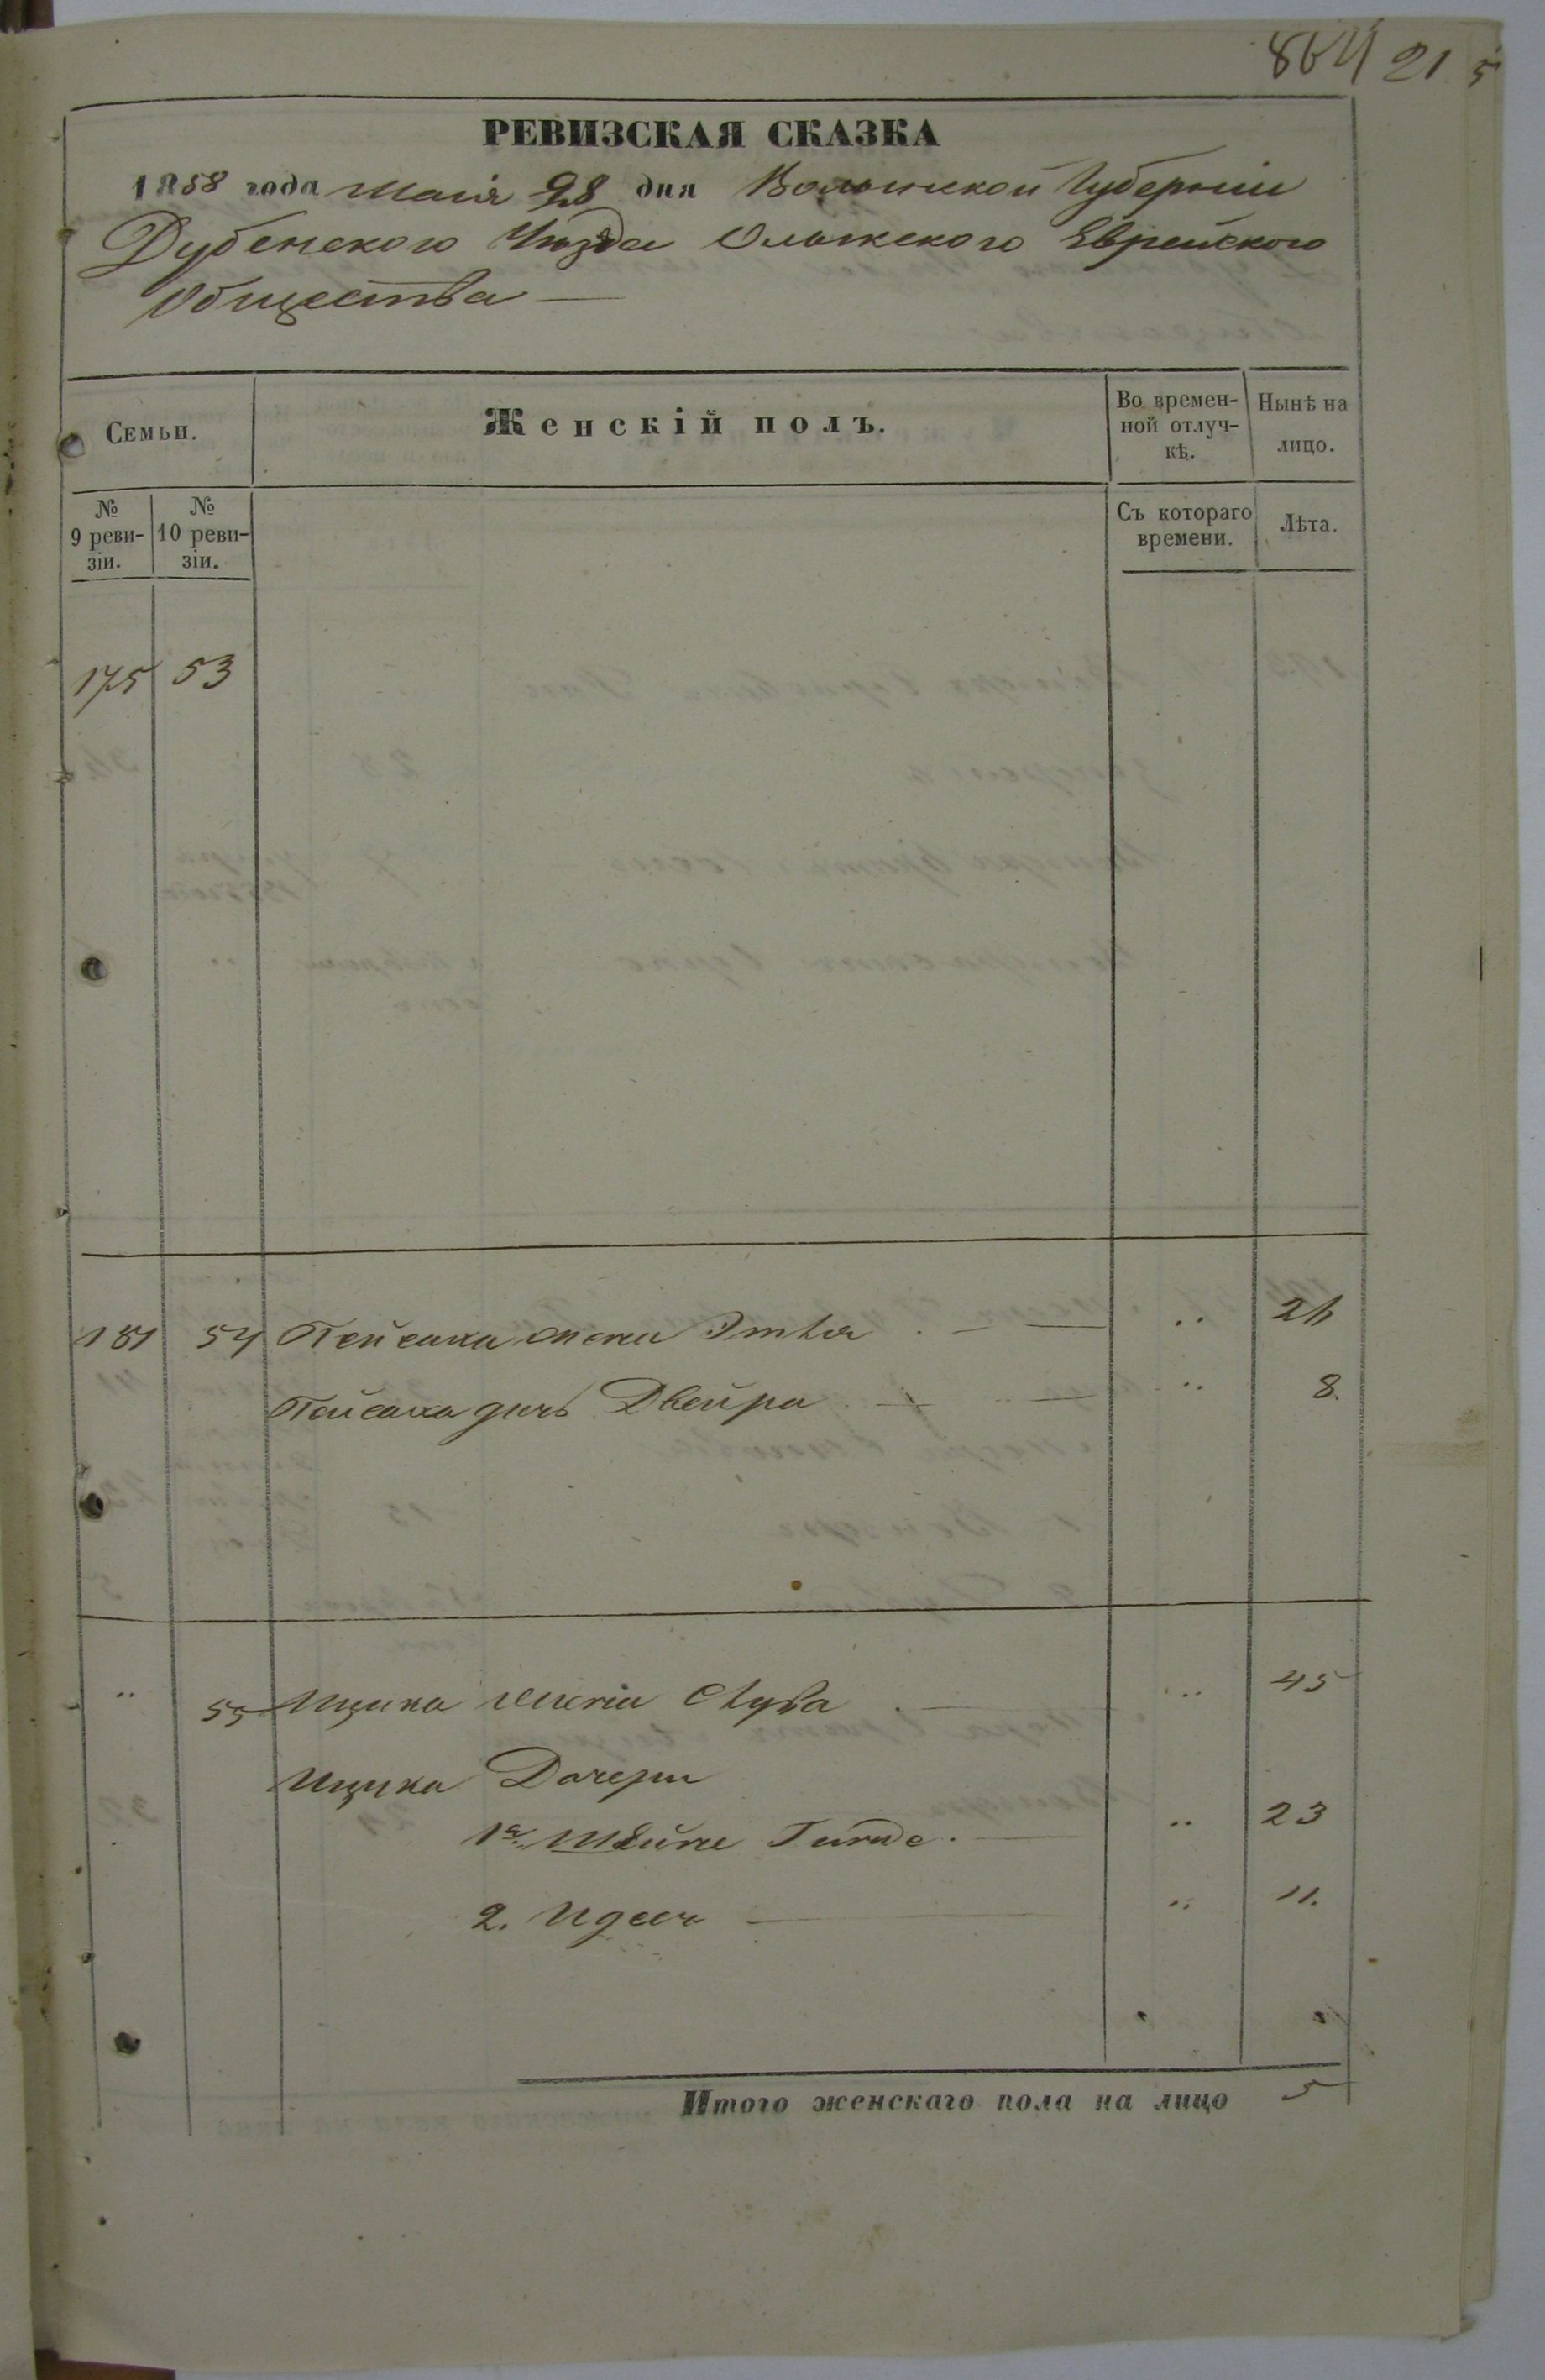 864 21 5
РЕВИЗСКАЯ СКАЗКА
1858 года маія 28 дня Волынской Губерніи
Дубенского Уѣзда Олыкского Еврейского
Общества —
Семьи.
Женскій полъ.
Во времен-
ной отлуч-
кѣ.
Нынѣ на
лицо.
№
9 реви-
зіи.
№
10 реви-
зіи.
Съ котораго
времени.
Лѣта.
175 53
181 54 Пейсаха жена Этля . — — .. 26
Пейсаха дочь Двейра — — .. 8.
.. 55 Ицика жена Хува . — .. 45
Ицика Дочери
1я Шейне . — .. 23
2. Идесь — .. 11.
Итого женскаго пола на лицо 5